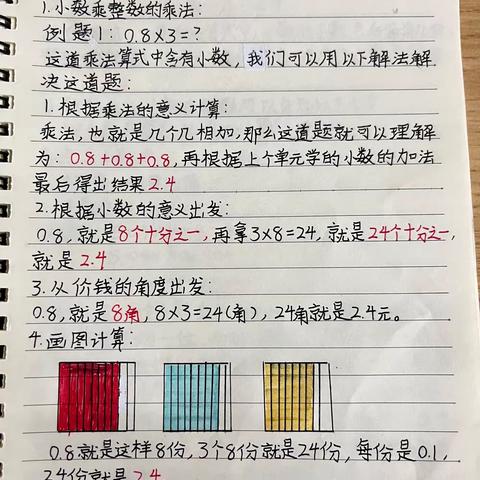 1.小数乘整数的乘法:
例题1:0.8×3=?
这道乘法算式中含有小数,我们可以用以下解法解
决这道题:
1.根据乘法的意义计算:
乘法,也就是几个几相加,那么这道题就可以理解
为:0.8+0.8+0.8,再根据上个单元学的小数的加法
最后得出结果2.4
2.根据小数的意义出发:
0.8,就是8个十分之一,再拿3×8=24,就是24个十分之一,
就是2.4
3.从价钱的角度出发:
0.8,就是8角,8×3=24(角),24角就是2.4元。
4.画图计算:
0.8就是这样8份,3个8份就是24份,每份是0.1,
24份就是2.4